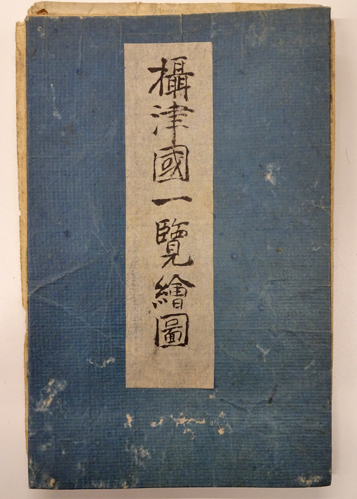 攝津國一覽繪圖